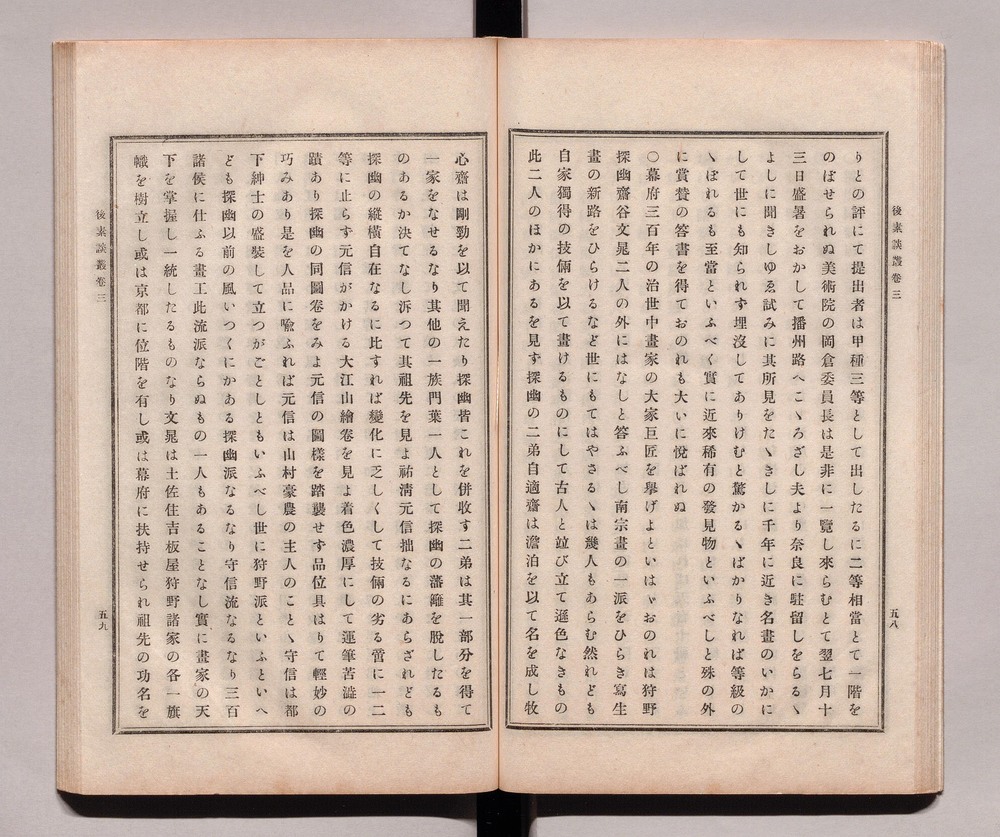 後素談叢卷三
五八
りとの評にて提出者は甲種三等として出したるに二等相當とて一階を
のぼせられぬ美術院の岡倉委員長は是非に一覽し來らむとて翌七月十
三日盛暑をおかして播州路へこゝろざし夫より奈良に駐留しをらるゝ
よしに聞きしゆゑ試みに其所見をたゝきしに千年に近き名畫のいかに
して世にも知られず埋沒してありけむと驚かるゝばかりなれば等級の
ゝぼれるも至當といふべく實に近來稀有の發見物といふべしと殊の外
に賞賛の答書を得ておのれも大いに悅ばれぬ
〇幕府三百年の治世中畫家の大家巨匠を擧げよといはゞおのれは狩野
探幽齋谷文晁二人の外にはなしと答ふべし南宗畫の一派をひらき寫生
畫の新路をひらけるなど世にもてはやさるゝは幾人もあらむ然れども
自家獨得の技倆を以て畫けるものにして古人と竝び立て遜色なきもの
此二人のほかにあるを見ず探幽の二弟自適齋は澹泊を以て名を成し牧
心齋は剛勁を以て聞えたり探幽皆これを併收す二弟は其一部分を得て
一家をなせるなり其他の一族門葉一人として探幽の藩籬を脫したるも
のあるか決てなし泝つて其祖先を見よ祐淸元信拙なるにあらざれども
探幽の縱橫自在なるに比すれば變化に乏しくして技倆の劣る啻に一二
等に止らず元信がかける大江山繪卷を見よ着色濃厚にして運筆苦澁の
蹟あり探幽の同圖卷をみよ元信の圖樣を踏襲せず品位具はりて輕妙の
巧みあり是を人品に喩ふれば元信は山村豪農の主人のことゝ守信は都
下紳士の盛裝して立つがごとしともいふべし世に狩野派といふといへ
ども探幽以前の風いつくにかある探幽派なるなり守信流なるなり三百
諸侯に仕ふる畫工此流派ならぬもの一人もあることなし實に畫家の天
下を掌握し一統したるものなり文晁は土佐住吉板屋狩野諸家の各一旗
幟を樹立し或は京都に位階を有し或は幕府に扶持せられ祖先の功名を
後素談叢卷三
五九